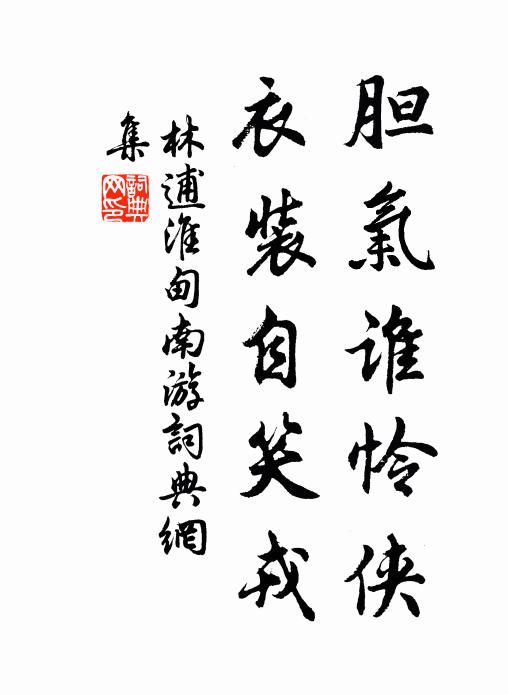 胆氣谁怜侠
衣裝自笑戎
林逋淮甸南游詞典網
集
詞典
网印